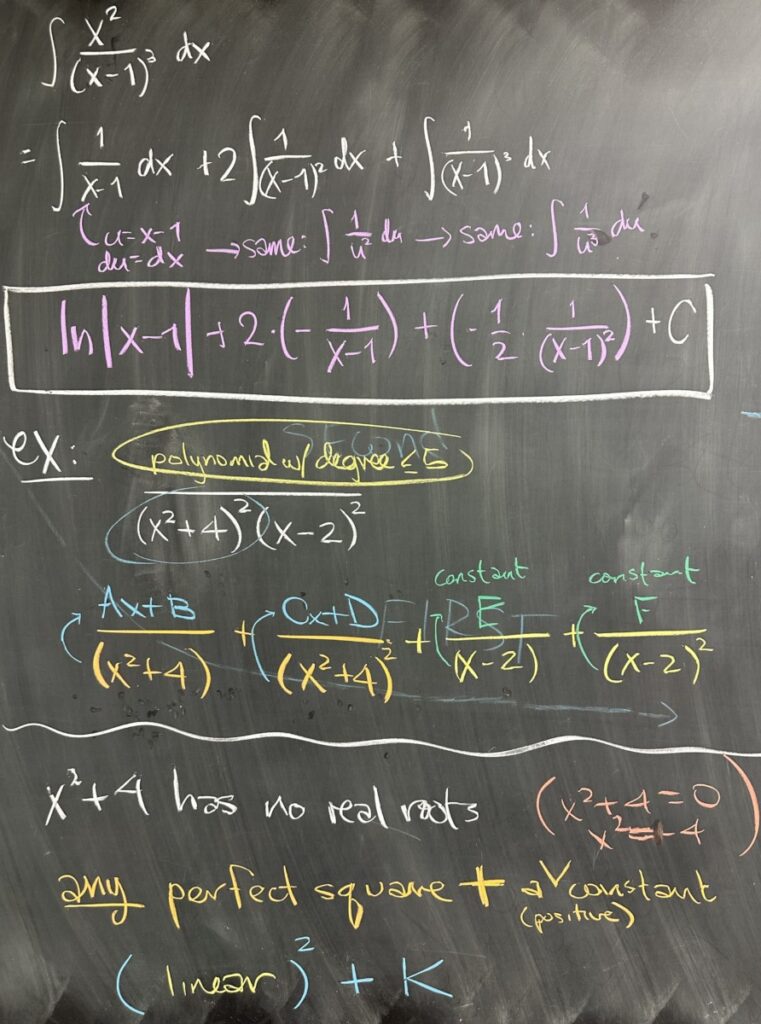 ∫ x²/(x-1)³ dx
= ∫ 1/(x-1) dx + 2∫ 1/(x-1)² dx + ∫ 1/(x-1)³ dx
u=x-1
du=dx → same: ∫ 1/u² du → same: ∫ 1/u³ du
ln|x-1| + 2·(- 1/(x-1)) + (- 1/2 · 1/(x-1)²) + C
ex:
SECOND
polynomial w/ degree ≤ 5
(x²+4)² (x-2)²
constant constant
FIRST
(Ax+B)/(x²+4) + (Cx+D)/(x²+4)² + E/(x-2) + F/(x-2)²
x²+4 has no real roots (x²+4=0
x²=-4)
any perfect square + a constant
(positive)
(linear)² + K